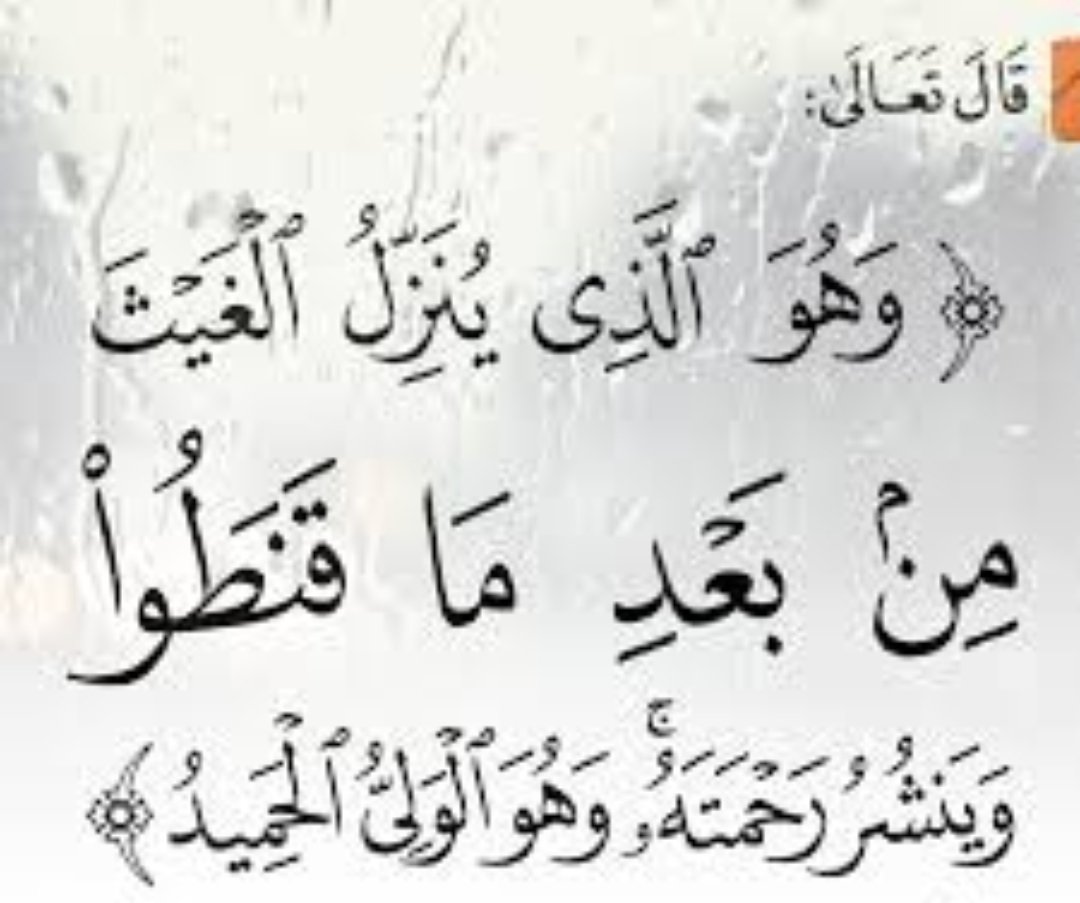 قَالَ تَعَالَىٰ:
﴿ وَهُوَ ٱلَّذِى يُنَزِّلُ ٱلْغَيْثَ
مِنۢ بَعْدِ مَا قَنَطُوا۟
وَيَنشُرُ رَحْمَتَهُۥ ۚ وَهُوَ ٱلْوَلِىُّ ٱلْحَمِيدُ ﴾